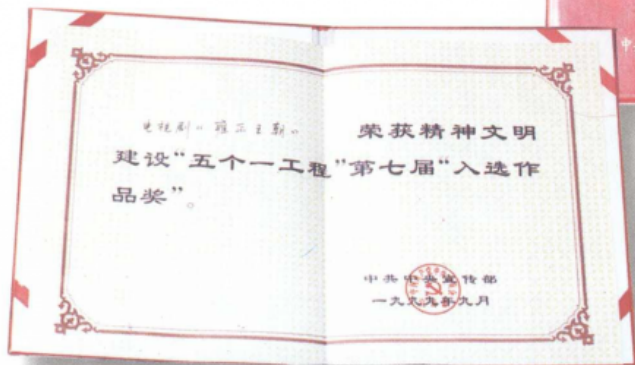 电视剧《雍正王朝》 荣获精神文明
建设“五个一工程”第七届“入选作
品奖”。
中共中央宣传部
一九九九年九月
中